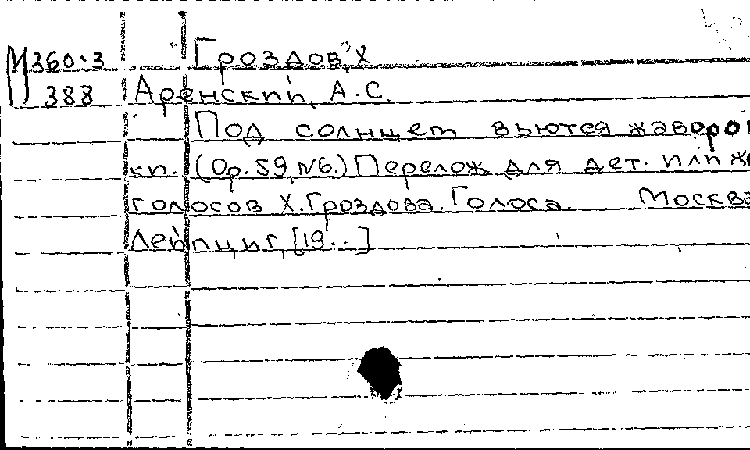 М360.3 "Гроздов", Х
388 Аренский, А.С.
Под солнцем вьются жаворон
ки. (Ор.59,№6.) Перелож для дет. или ж
голосов Х.Гроздова. Голоса. Москва
Лейпциг, [19..]